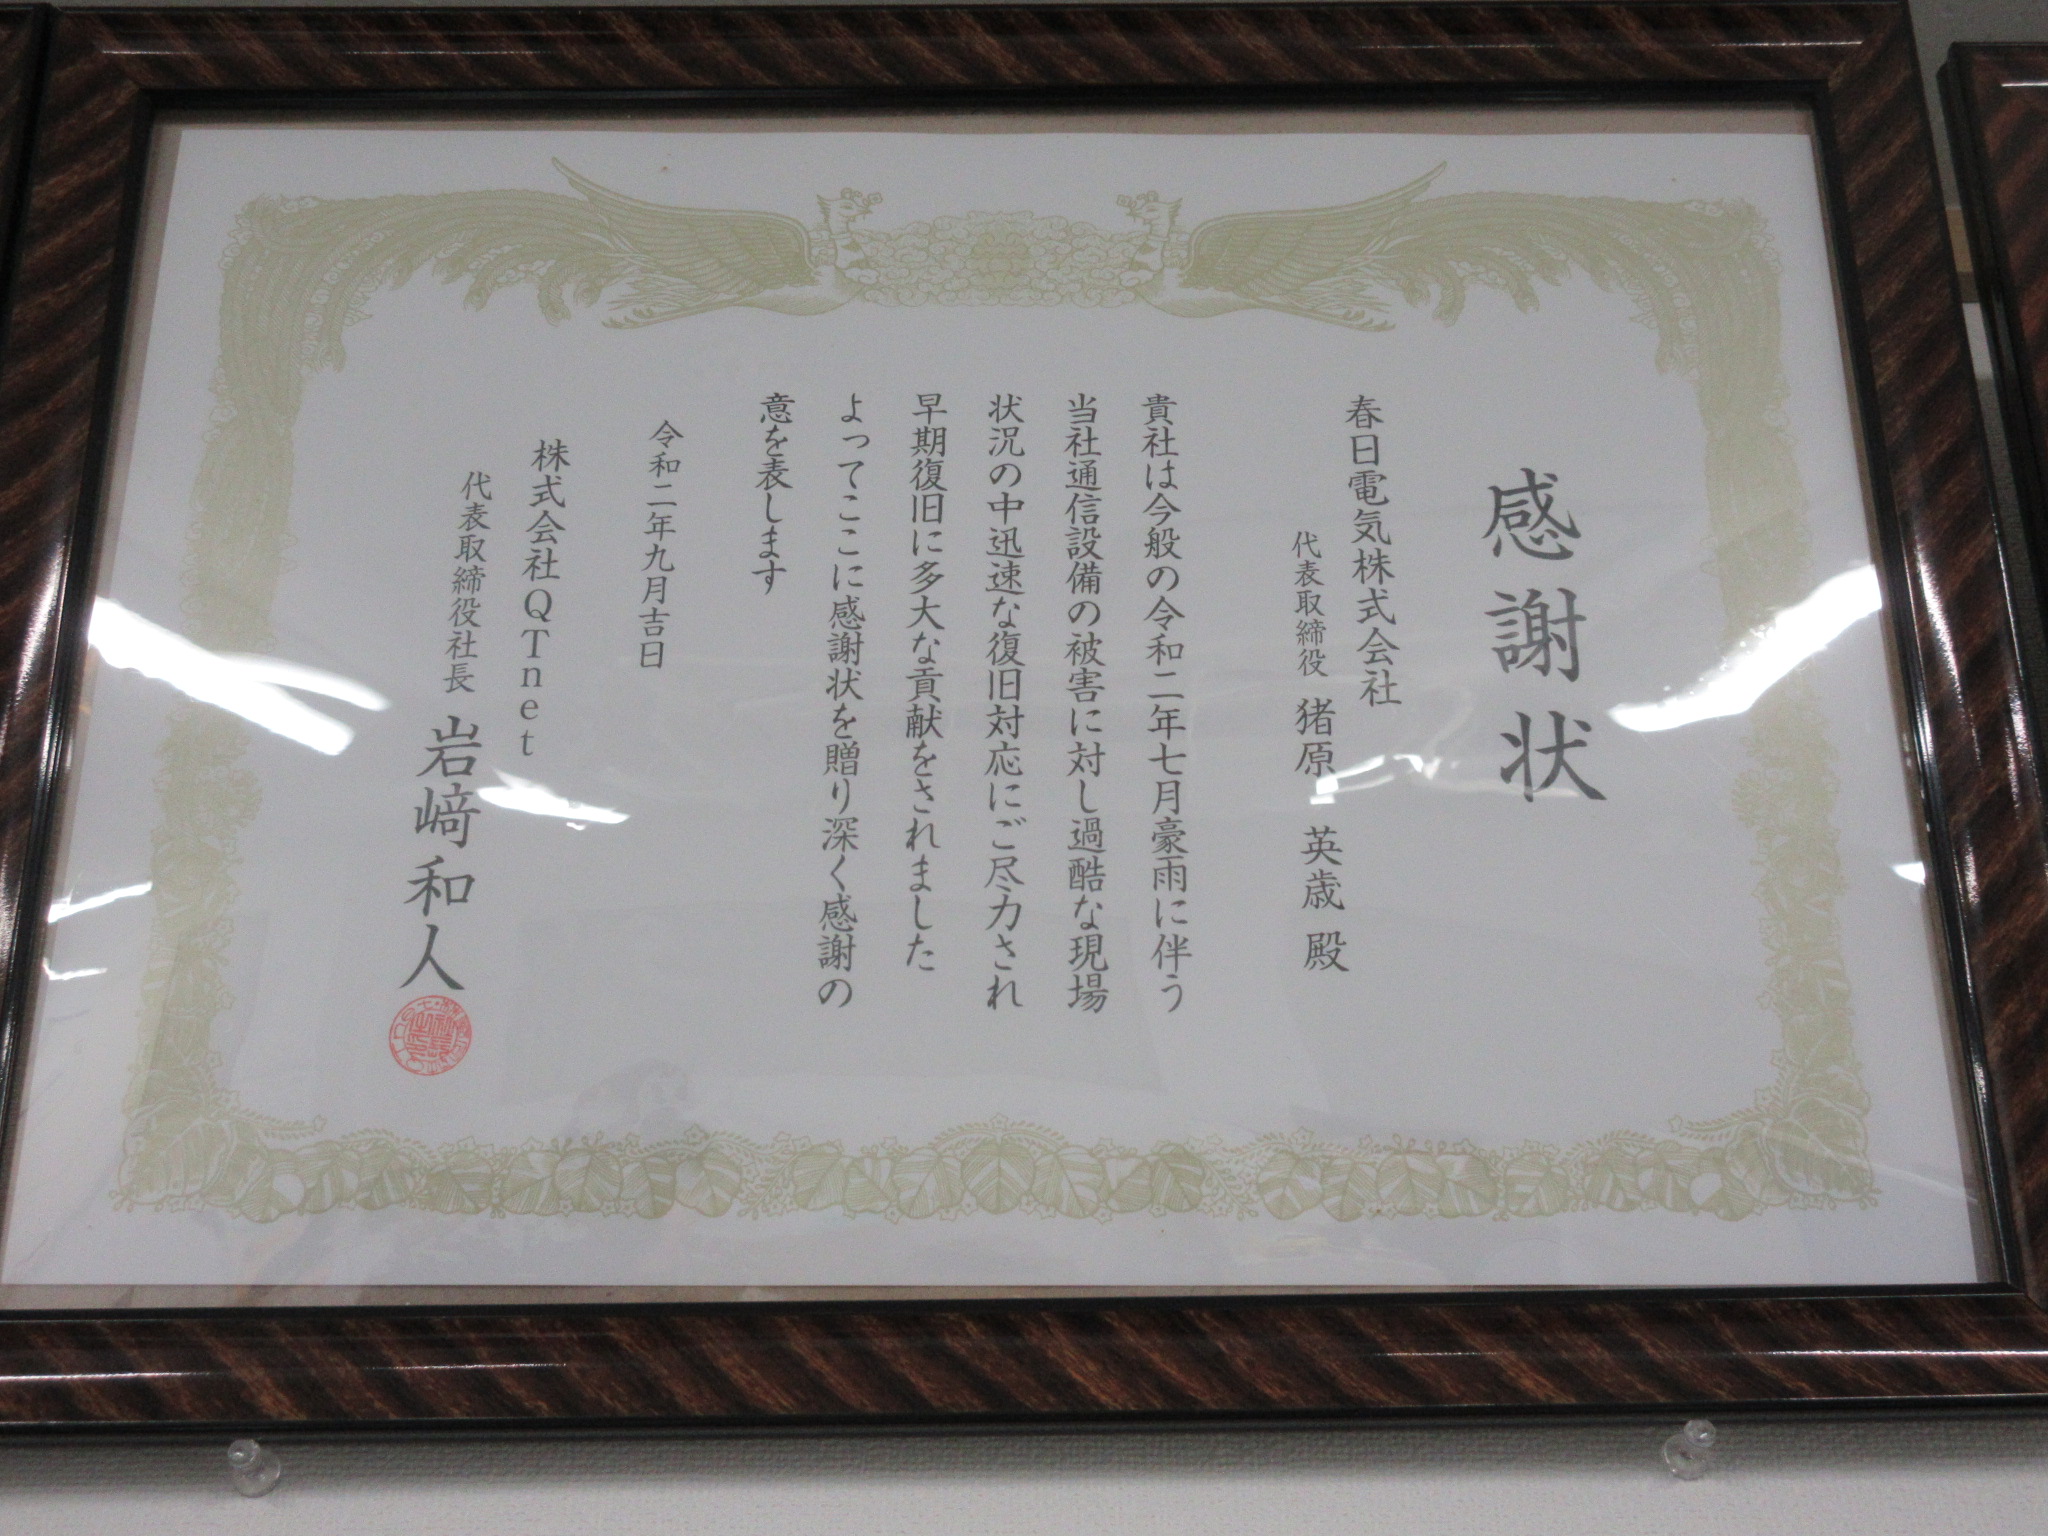 感謝状
春日電気株式会社
代表取締役 猪原 英歳 殿
貴社は今般の令和二年七月豪雨に伴う
当社通信設備の被害に対し過酷な現場
状況の中迅速な復旧対応にご尽力され
早期復旧に多大な貢献をされました
よってここに感謝状を贈り深く感謝の
意を表します
令和二年九月吉日
株式会社QTnet
代表取締役社長 岩﨑和人